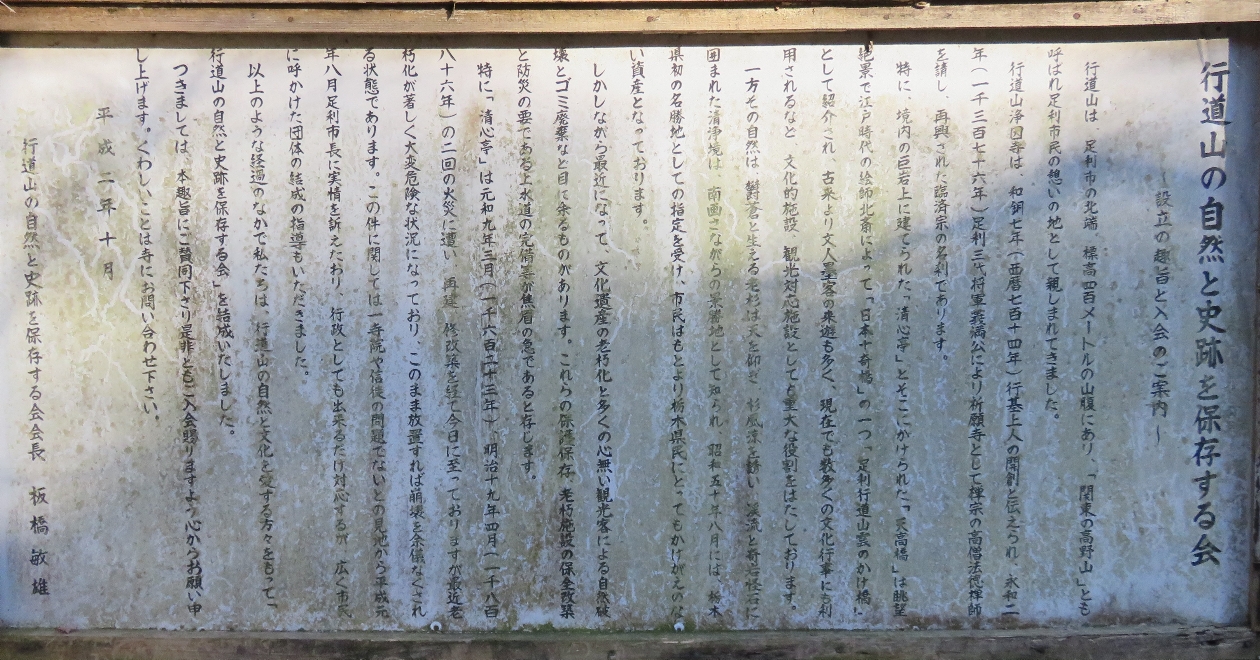 行道山の自然と史跡を保存する会
〜設立の趣旨と入会のご案内〜
行道山は、足利市の北端、標高四百メートルの山腹にあり、「関東の高野山」とも
呼ばれ足利市民の憩いの地として親しまれてきました。
行道山浄因寺は、和銅七年(西暦七百十四年)行基上人の開創と伝えられ、永和二
年(一千三百七十六年)足利三代将軍義満公により祈願寺として禅宗の高僧法徳禅師
を請し、再興された臨済宗の名刹であります。
特に、境内の巨岩上に建てられた「清心亭」とそこにかけられた「天高橋」は眺望
絶景で江戸時代の絵師北斎によって「日本十奇橋」の一つ「足利行道山雲のかけ橋」
として紹介され、古来より文人墨客の来遊も多く、現在でも数多くの文化行事にも利
用されるなど、文化的施設、観光対応施設としても重大な役割をはたしております。
一方その自然は、鬱蒼と生える老杉は天を仰ぎ、杉風涼を誘い、渓流と奇岩怪石に
囲まれた清浄境は、南画さながらの景勝地として知られ、昭和五十年八月には、栃木
県初の名勝地としての指定を受け、市民はもとより栃木県民にとってもかけがえのな
い資産となっております。
しかしながら最近になって、文化遺産の老朽化と多くの心無い観光客による自然破
壊とゴミ廃棄など目に余るものがあります。これらの保護保存、老朽施設の保全改築
と防災の要である上水道の完備等が焦眉の急であると存じます。
特に「清心亭」は元和九年三月(一千六百二十三年)、明治十九年四月(一千八百
八十六年)の二回の火災に遭い、再建、修改築を経て今日に至っておりますが最近老
朽化が著しく大変危険な状況になっており、このまま放置すれば崩壊を余儀なくされ
る状態であります。この件に関しては一寺院や信徒の問題でないとの見地から平成元
年八月足利市長に実情を訴えたおり、行政としても出来るだけ対応するが、広く市民
に呼かけた団体の結成の指導もいただきました。
以上のような経過のなかで私たちは、行道山の自然と文化を愛する方々をもって「
行道山の自然と史跡を保存する会」を結成いたしました。
つきましては、本趣旨にご賛同下さり是非ともご入会賜りますよう心からお願い申
し上げます。くわしいことは寺にお問い合わせ下さい。
平成二年十月
行道山の自然と史跡を保存する会会長 板橋敏雄